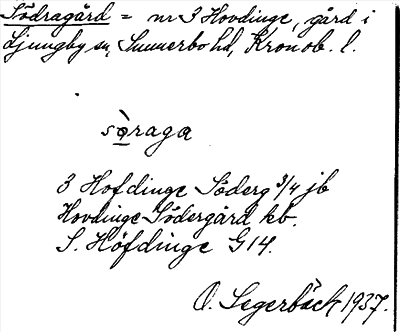 Södragård = nr 3 Hovdinge, gård i
Ljungby sn, Sunnerbo hd, Kronob. l.
sòraga
3 Hofdinge Söderg 3/4 jb
Hovdinge Södergård kb.
S. Höfdinge G 14.
O. Segerbäck 1937.